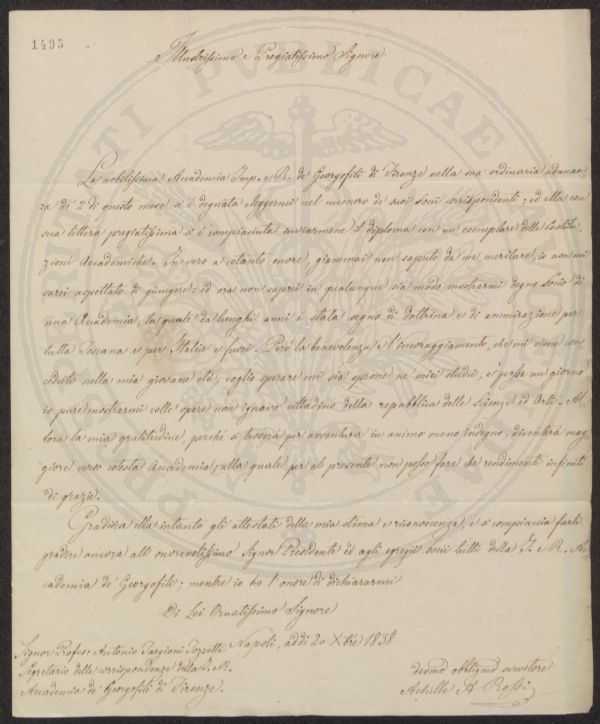 1495
Illustrissimo e Pregiatissimo Signore
La nobilissima Accademia Imp. e R. de' Georgofili di Firenze nella sua ordinaria adunan-
za di 2 di questo mese si è degnata eleggermi nel numero de' suoi socii corrispondenti; ed ella con
sua lettera pregiatissima si è compiaciuta inviarmene il diploma con un esemplare delle Costitu-
zioni Accademiche. In vero a cotanto onore, giammai non saputo da me meritare, io non mi
sarei aspettato di giungere: ed ora non saprei in qualunque sia modo mostrarmi degno Socio di
una Accademia, la quale da lunghi anni è stata segno di dottrina e di ammirazione per
tutta Toscana e per Italia e fuori. Però la benevolenza e l'incoraggiamento, che mi viene con-
ceduto nella mia giovane età, voglio sperare mi sia sprone ne' miei studii, e forse un giorno
io pure mostrarmi colle opere non ignavo cittadino della repubblica delle Scienze ed Arti. Al-
lora la mia gratitudine, perchè si troverà per avventura in animo meno indegno, diventerà mag-
giore verso cotesta Accademia; alla quale per al presente non posso fare che rendimenti infiniti
di grazie.
Gradisca ella intanto gli attestati della mia stima e riconoscenza, e si compiaccia farli
gradire ancora all' onorevolissimo Signor Presidente ed agli egregii socii tutti della I. e R. Ac-
cademia de' Georgofili; mentre io ho l'onore di dichiararmi
Di Lei Ornatissimo Signore
Napoli, addì 20 Xbre 1838
Signor Profes. Antonio Targioni Tozzetti
Segretario delle corrispondenze della I. R.
Accademia de' Georgofili di Firenze.
devmo obbligmo servitore
Achille A. Rossi
PVBLICAE